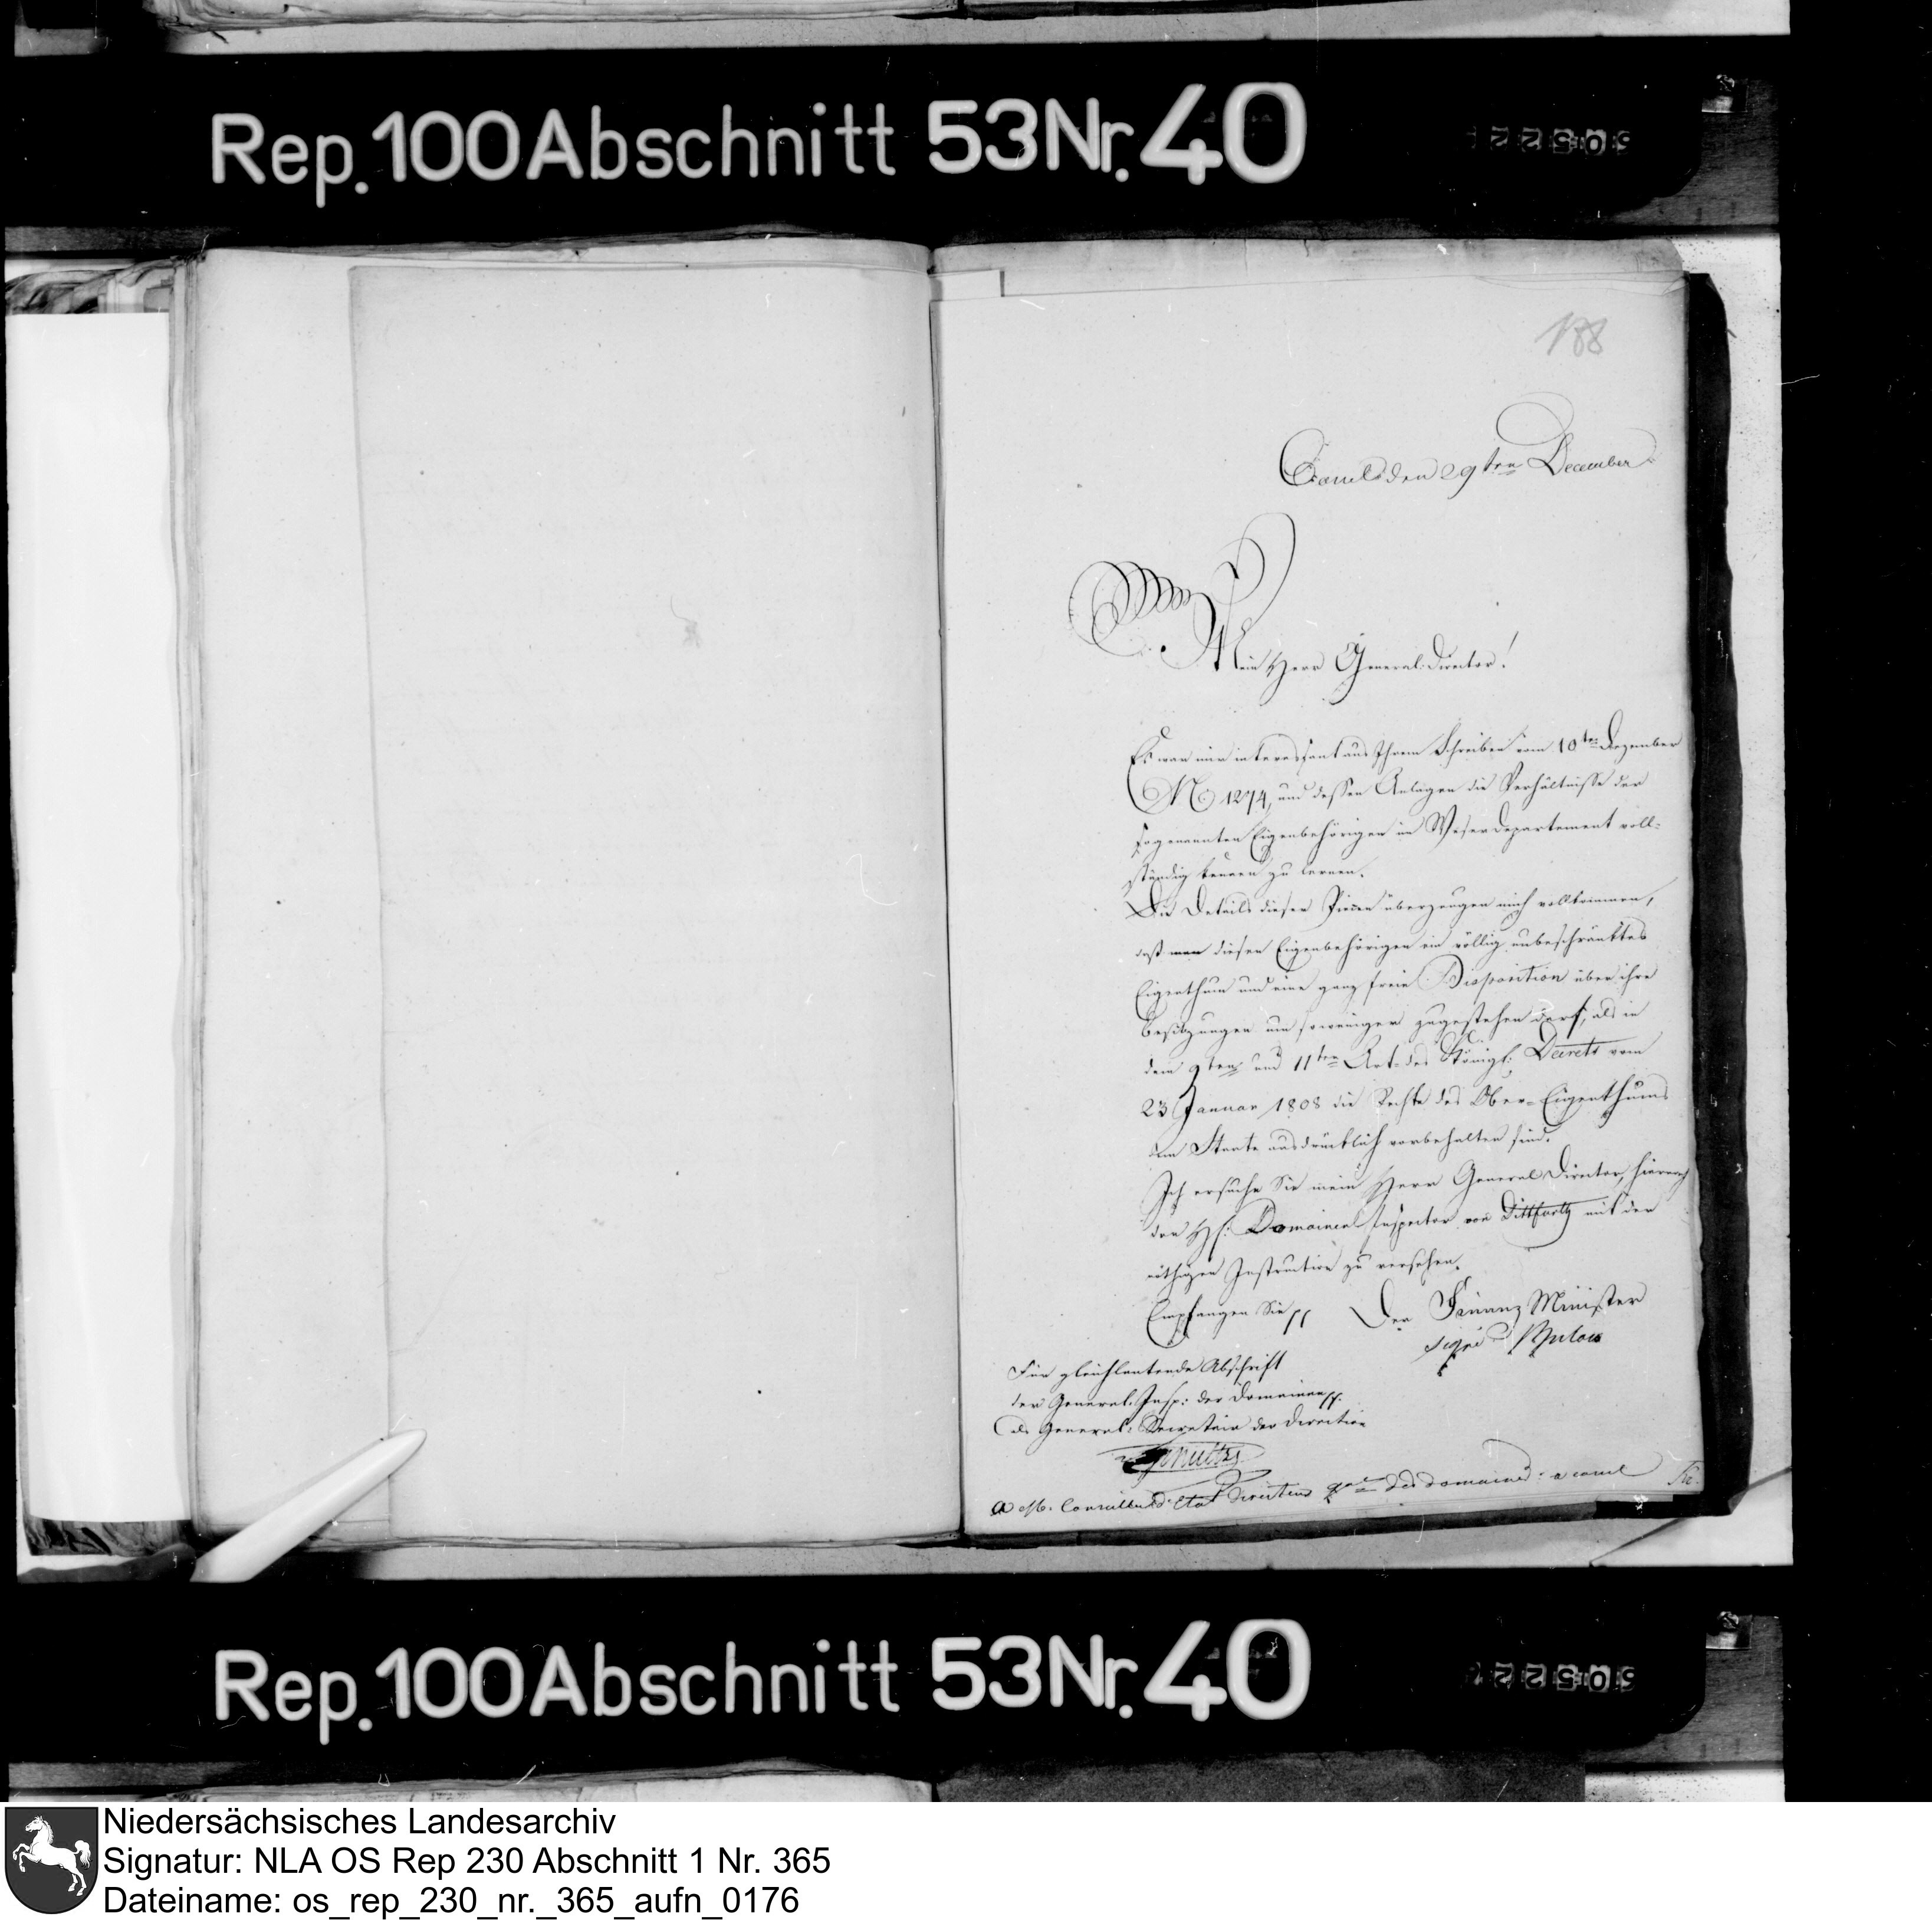 Rep. 100 Abschnitt 53 Nr. 40
188
Cassel den 29ten December
Mein Herr General-Director!
Es war mir interessant aus Ihrem Schreiben vom 10ten Dezember
No 1274, und dessen Anlagen die Verhältnisse der
sogenannten Eigenbehörigen im Weserdepartement voll-
ständig kennen zu lernen.
Die Details dieser Piecen überzeugen mich vollkommen,
daß man diesen Eigenbehörigen ein völlig unbeschränktes
Eigenthum und eine ganz freie Disposition über ihre
Besitzungen um soweniger zugestehen darf, als in
dem 9ten und 11ten Art. des Königl: Decrets vom
23 Januar 1808 die Rechte des Ober-Eigenthums
dem Staate ausdrücklich vorbehalten sind.
Ich ersuche Sie mein Herr General Director, hiernach
den H: Domainen Inspector von Dittfurth mit der
nöthigen Instruction zu versehen.
Empfangen Sie pp Der Finanz Minister
signé Bulow
Für gleichlautende Abschrift
der General-Insp: der Domainen pp.
als General-Secretair der Direction
a M. Conseiller d'Etat Directeur gal des domaines a Cassel
Rep. 100 Abschnitt 53 Nr. 40
Niedersächsisches Landesarchiv
Signatur: NLA OS Rep 230 Abschnitt 1 Nr. 365
Dateiname: os_rep_230_nr._365_aufn_0176